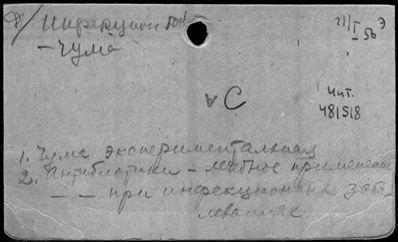 Инфекцион бол
– Чума
21/I – 56
Э
C
Чит.
48/5/8
1. Чума экспериментальная
2. Антибиотики – лечебное применение
– – при инфекционных забо-
леваниях